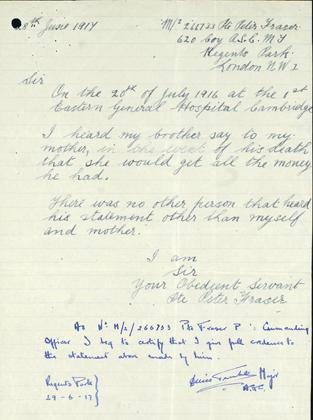 28th June 1917
M/2 266733 Pte Peter Fraser
620 Coy A.S.C. M.T
Regents Park
London N.W 1
Sir
On the 20th of July 1916 at the 1st
Eastern General Hospital Cambridge
I heard my boother say to my
mother, in the event of his death
that she would get all the money
he had.
There was no other person that heard
his statement other than myself
and mother.
I am
Sir
Your Obedient Servant
Pte Peter Fraser
As No M/2/266733 Pte Fraser P's Commanding
Officer I beg to certify that I give full credence to
the statement above made by him.
Regents Park
29-6-17
Major
A.S.C.